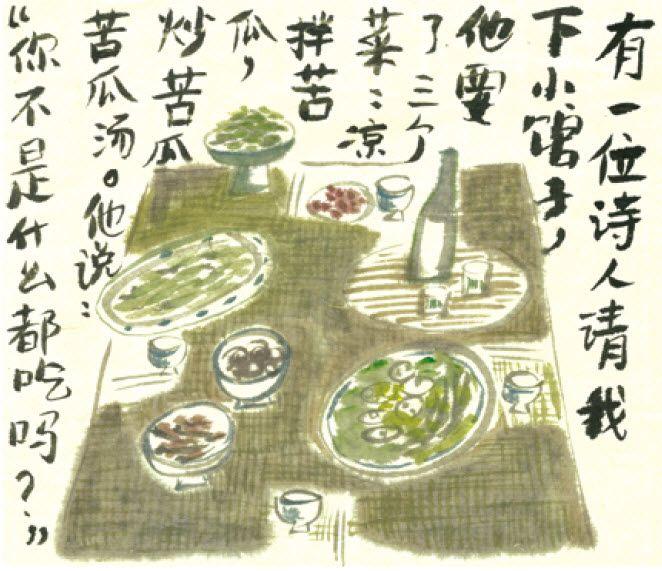 有一位诗人请我
下小馆子，
他要
了三个
菜：凉
拌苦
瓜，
炒苦瓜
苦瓜汤。他说：
“你不是什么都吃吗？”